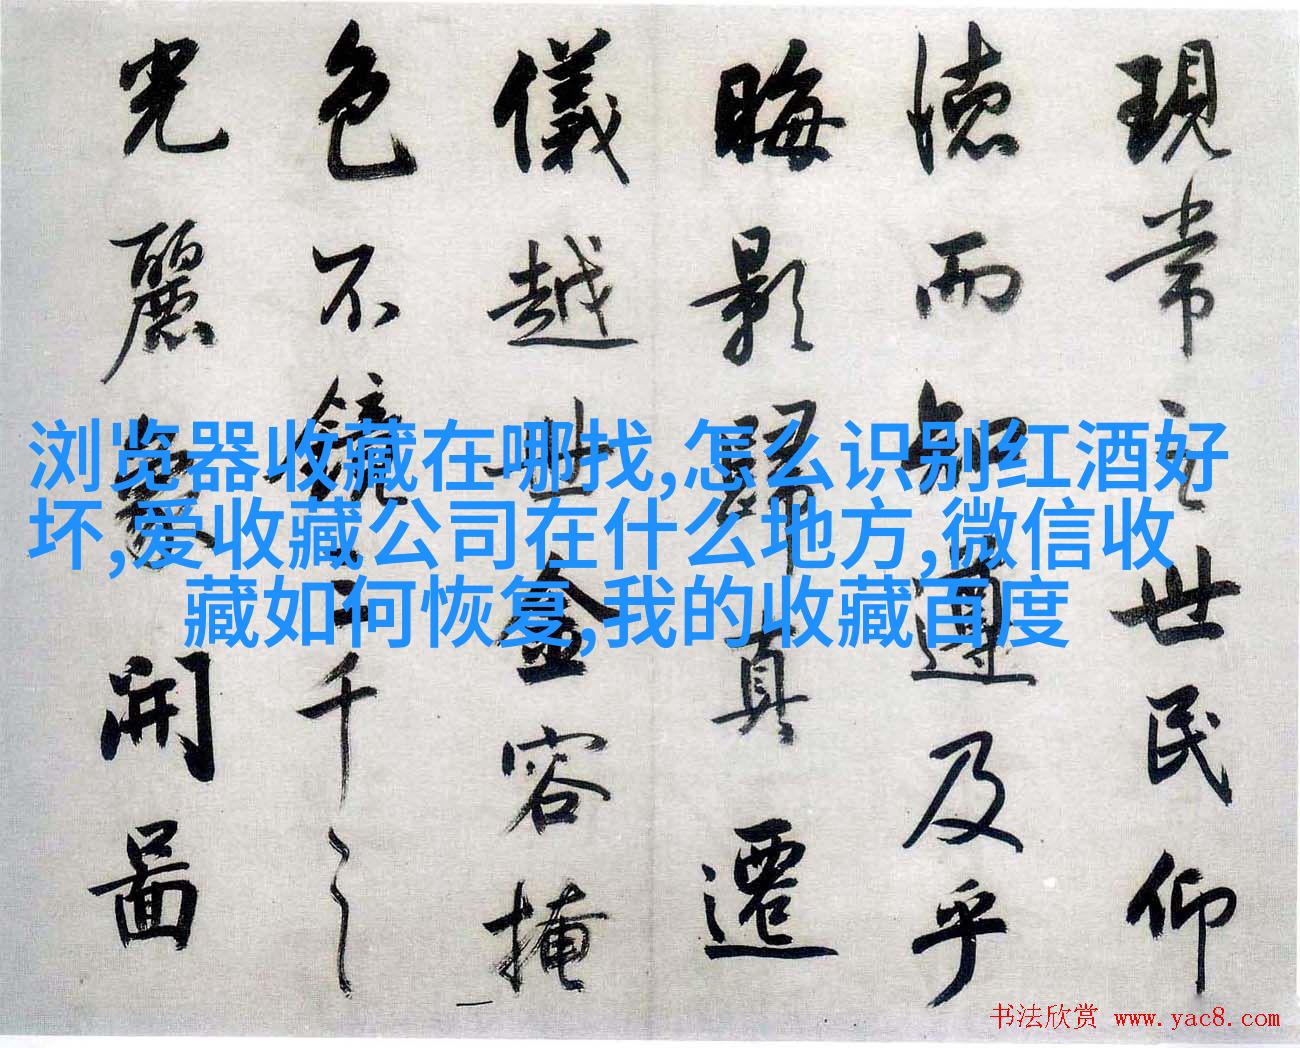 現常之世民仰
徳而知遵及乎
晦影歸真遷
儀越世金容掩
色不鏡三千之
光麗象開圖
浏览器收藏在哪找,怎么识别红酒好
坏,爱收藏公司在什么地方,微信收
藏如何恢复,我的收藏百度
书法欣赏 www.yac8.com